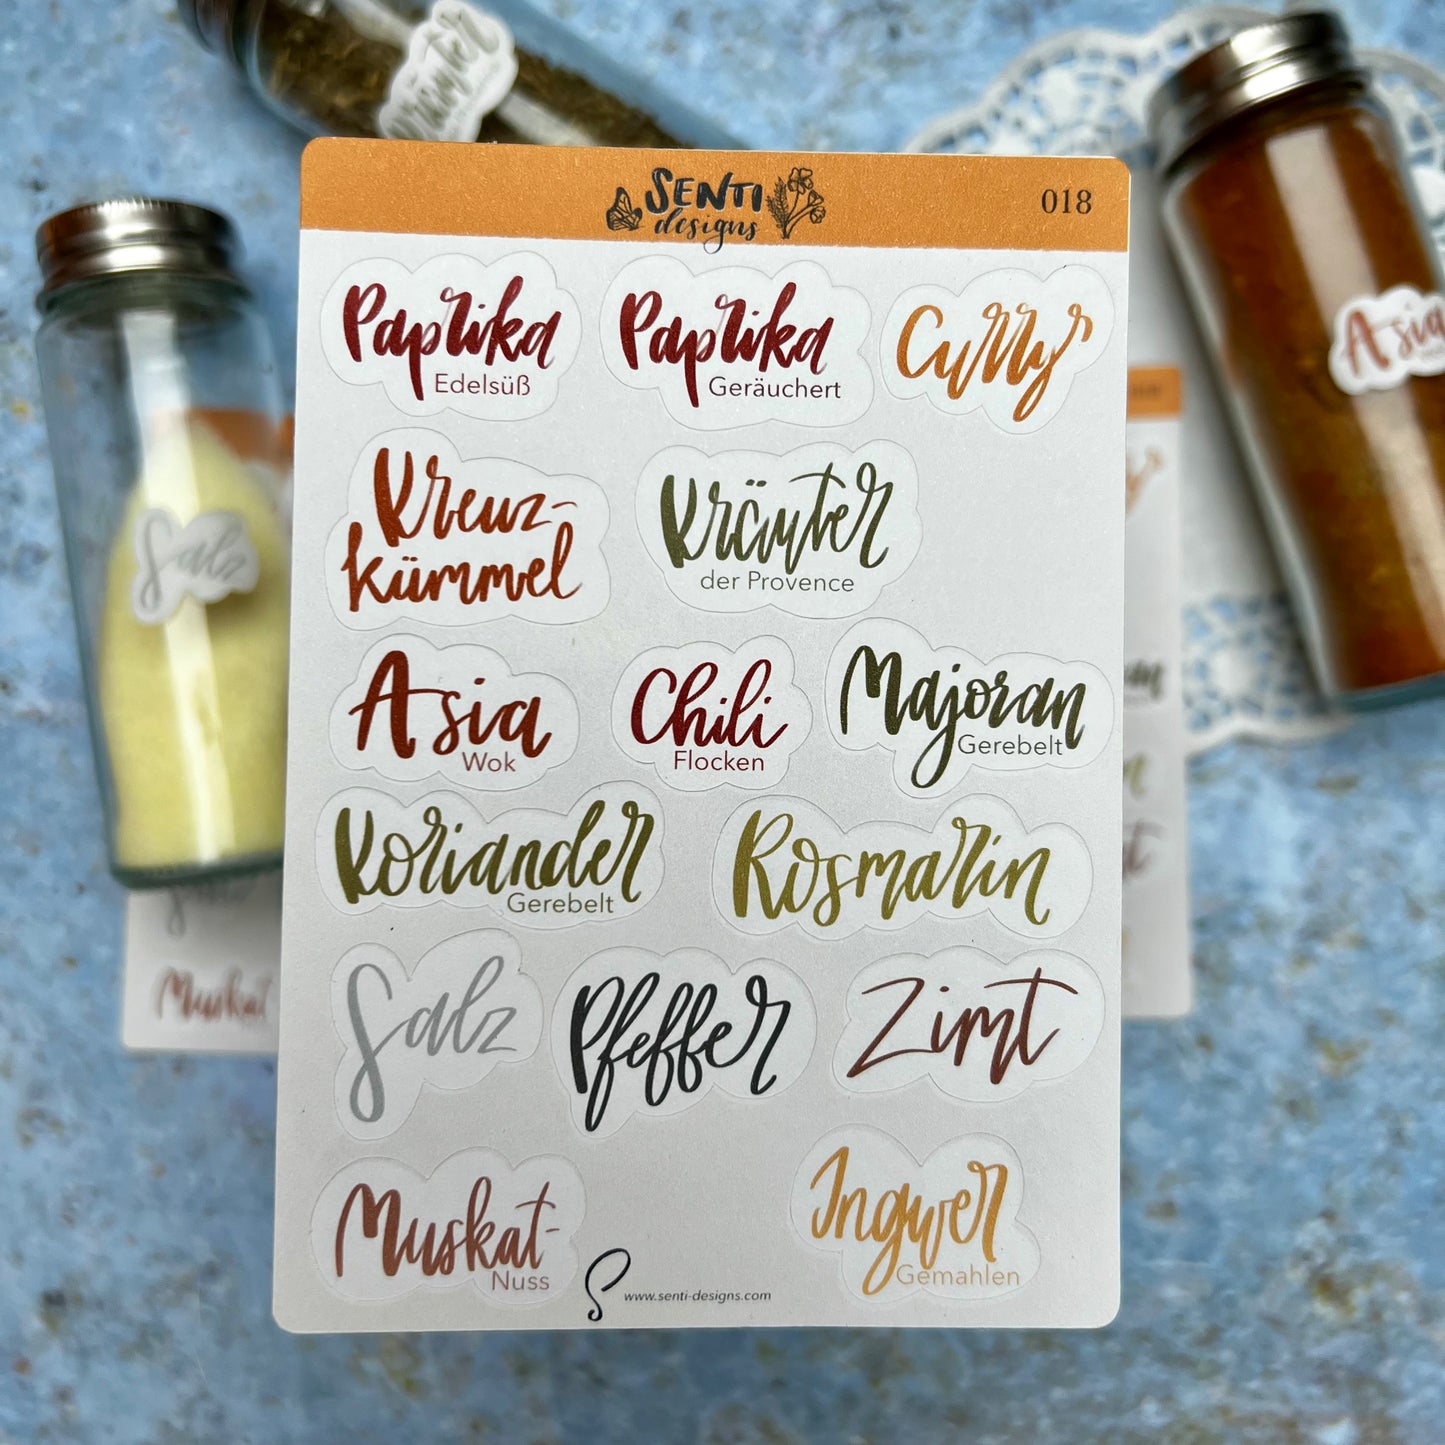 Kräuter
SENTI
designs
018
Paprika
Edelsüß
Paprika
Geräuchert
Curry
Kreuz-
kümmel
Kräuter
der Provence
Asia
Wok
Chili
Flocken
Majoran
Gerebelt
Koriander
Gerebelt
Rosmarin
Salz
Pfeffer
Zimt
Muskat-
Nuss
Ingwer
Gemahlen
www.senti-designs.com
Salz
Asia
Muskat